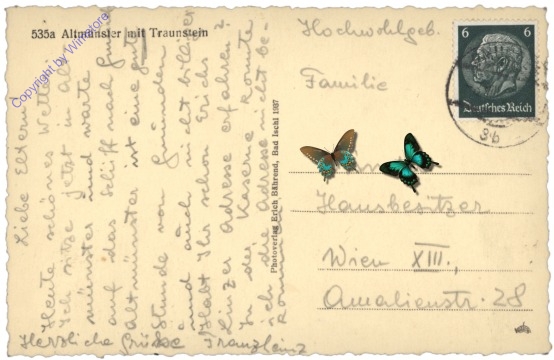 535a Altmünster mit Traunstein
Copyright by Winalore
Liebe Eltern!
Heute schönes Wetter.
Ich sitze jetzt in Alt-
münster und warte
auf das Schiff nach
Altmünster ist eine gute
Stunde von Gmunden
und auch nicht billiger
Habt Ihr schon Erichs
Linzer Adresse erfahren?
In der Kaserne konnte
ich die Adresse nicht be-
kommen
Herzliche Grüße Franzheinz
Photoverlag Erich Bährend, Bad Ischl 1937
Hochwohlgeb.
Familie
Hausbesitzer
Wien XIII.,
Amalienstr. 28
6 6
Deutsches Reich